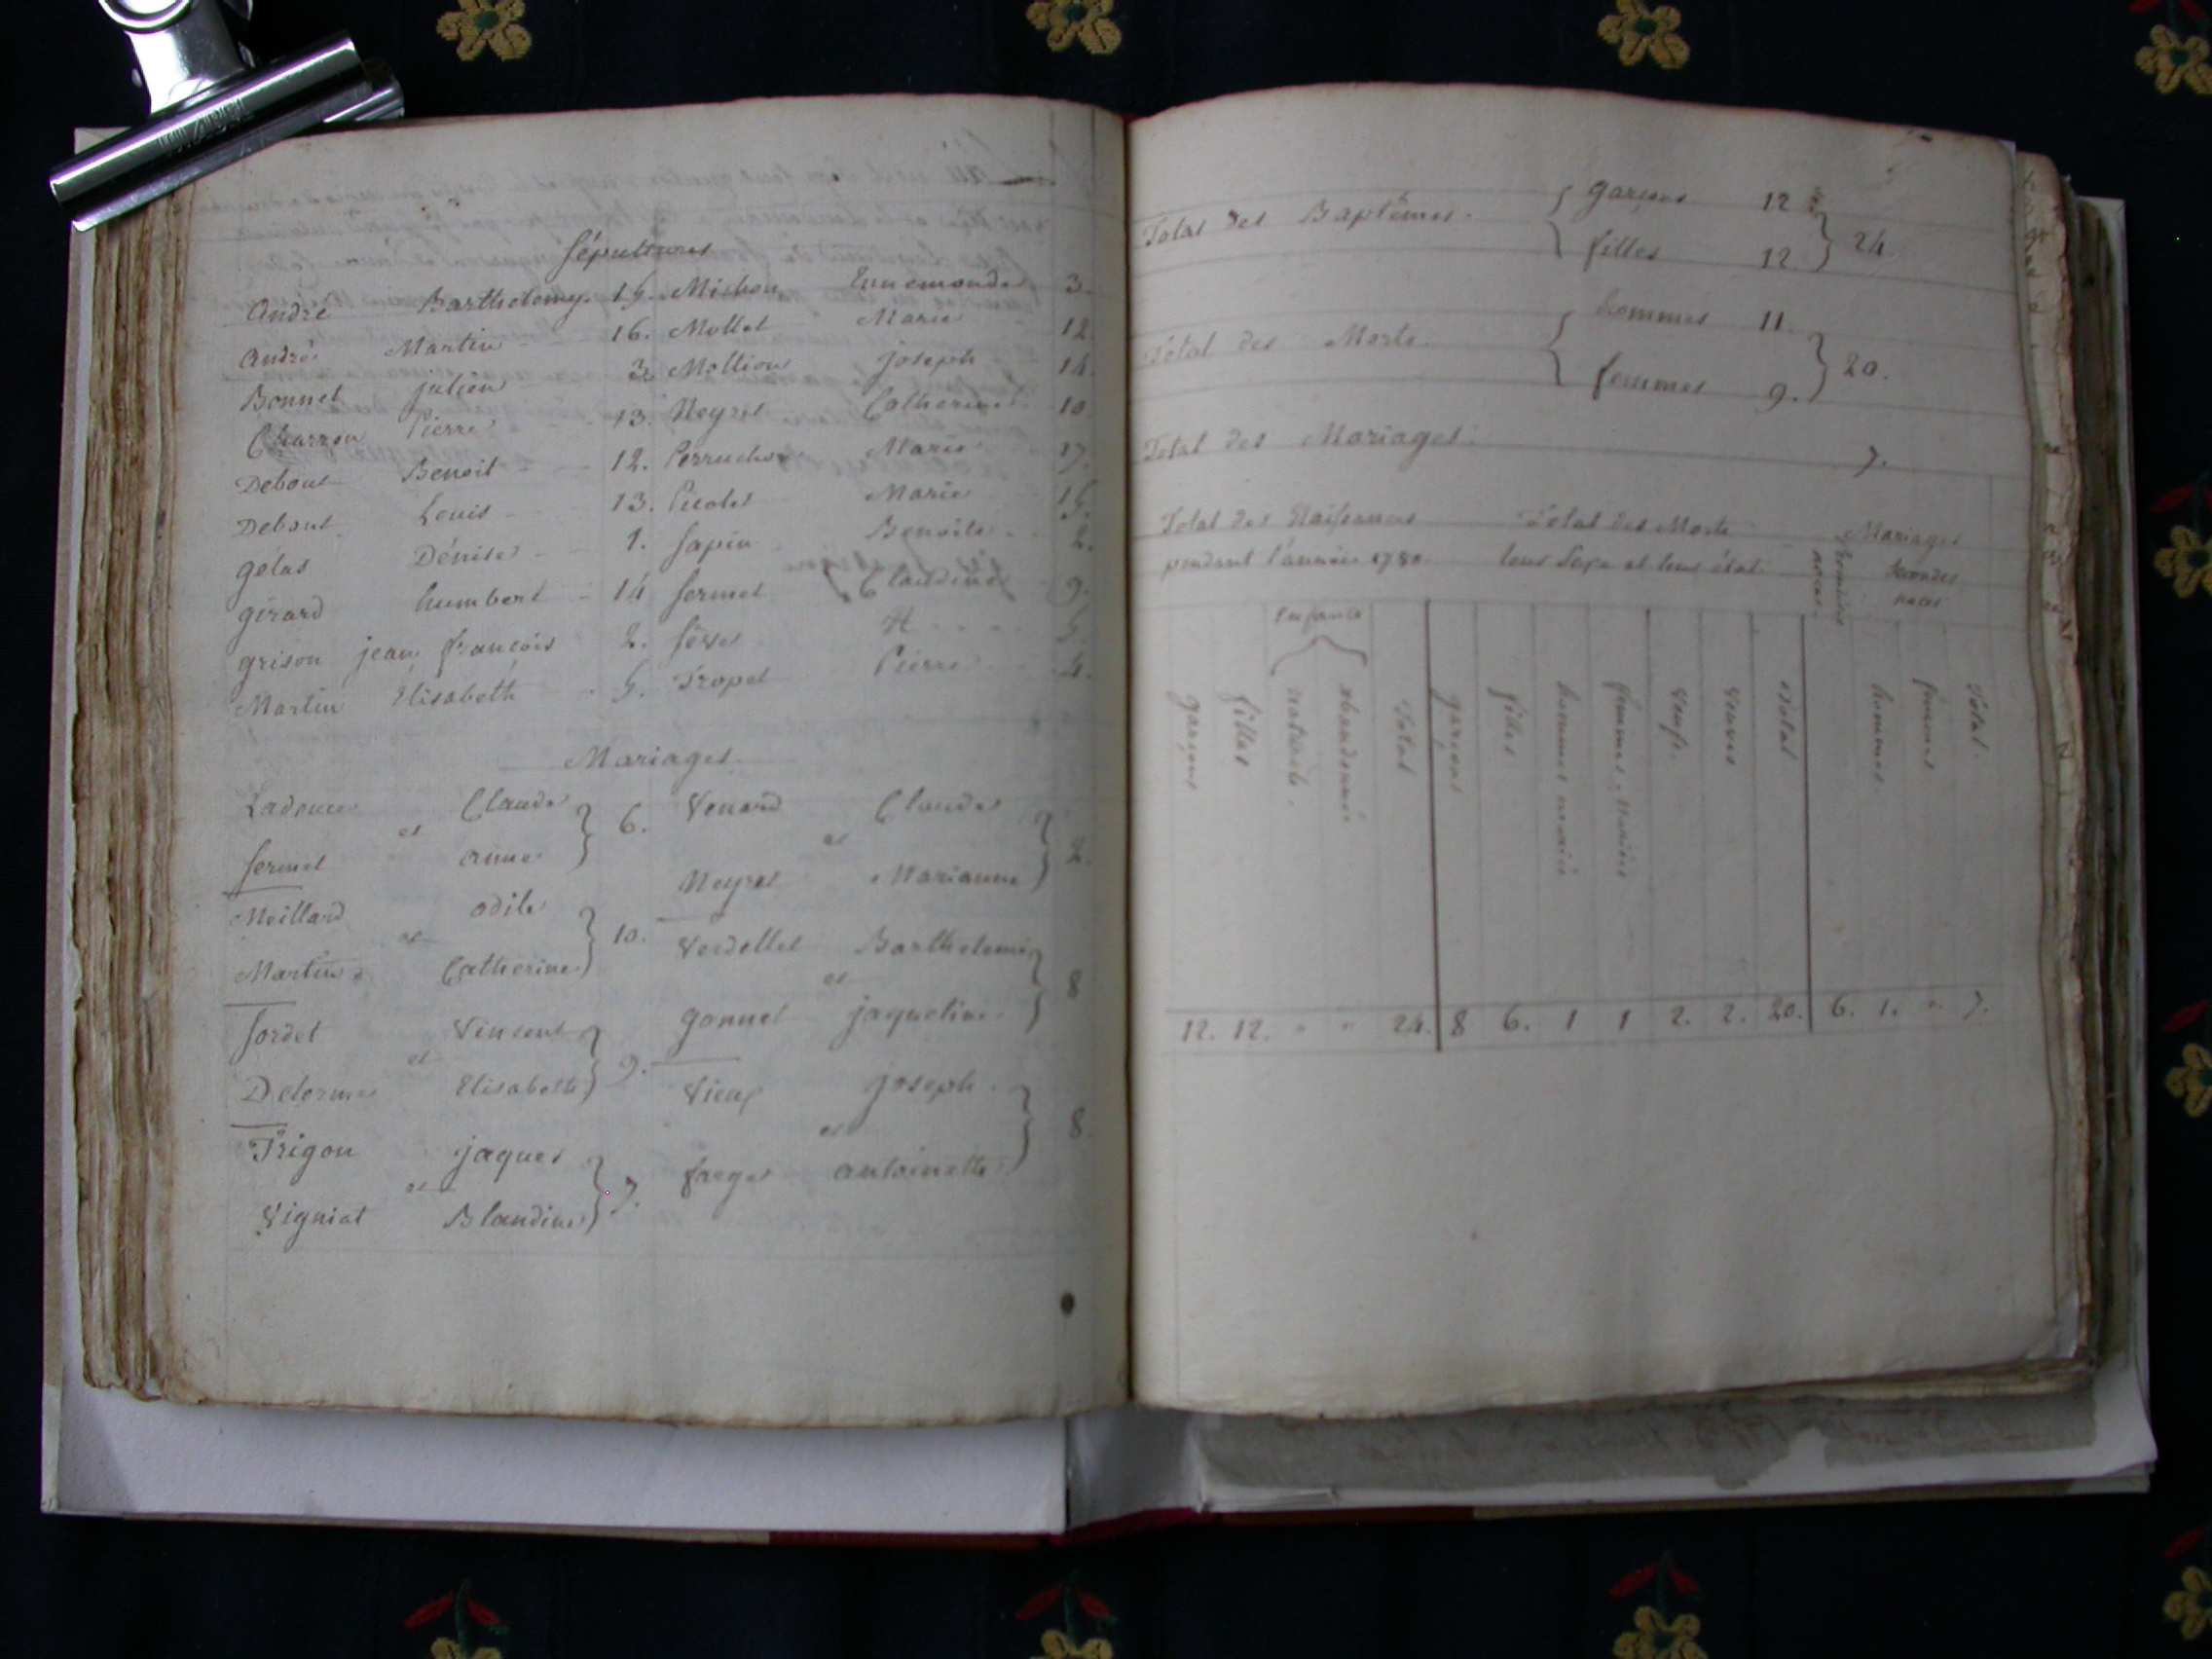 Sépultures
André Barthelemy. 15. Michon Ennemonde 3.
André Martin 16. Mollet Marie 12.
Bonnet julien 3. Mollion joseph 14.
Charron Pierre 13. Neyret Catherine 10
Debout Benoit 12. Perruchon Marie 17.
Debout Louis 13. Marie 15.
gélas Dénise 1. Sapin Benoite 2.
girard humbert 14 fermet Claudine 9.
grison jean françois 2. 5.
Martin Elisabeth 5. Tropel Pierre 4.
Mariages
Ladouce Claude Venard Claude
et 6. et 2.
fermet anne Neyret Marianne
Meillard odile Verdellet Barthelemi
et 10. et 8
Martin Catherine gonnet jaqueline
Sordet Vincent joseph
et 9. et 8
Delorme Elisabeth farge antoinette
Trigon jaques
et 7.
Vigniat Blandine
Total des Baptêmes. garçons 12
filles 12 24
Total des Morts. hommes 11
femmes 9. 20.
Total des Mariages. 7.
Total des Naissances Total des Morts Mariages
pendant l'année 1780 leur Sexe et leur état premieres noces secondes noces
Enfants
garçons filles naturels abandonnés Total garçons filles hommes mariés femmes Mariées Veufs Veuves Total hommes femmes Total
12. 12. " " 24. 8 6. 1 1 2. 2. 20. 6. 1. " 7.